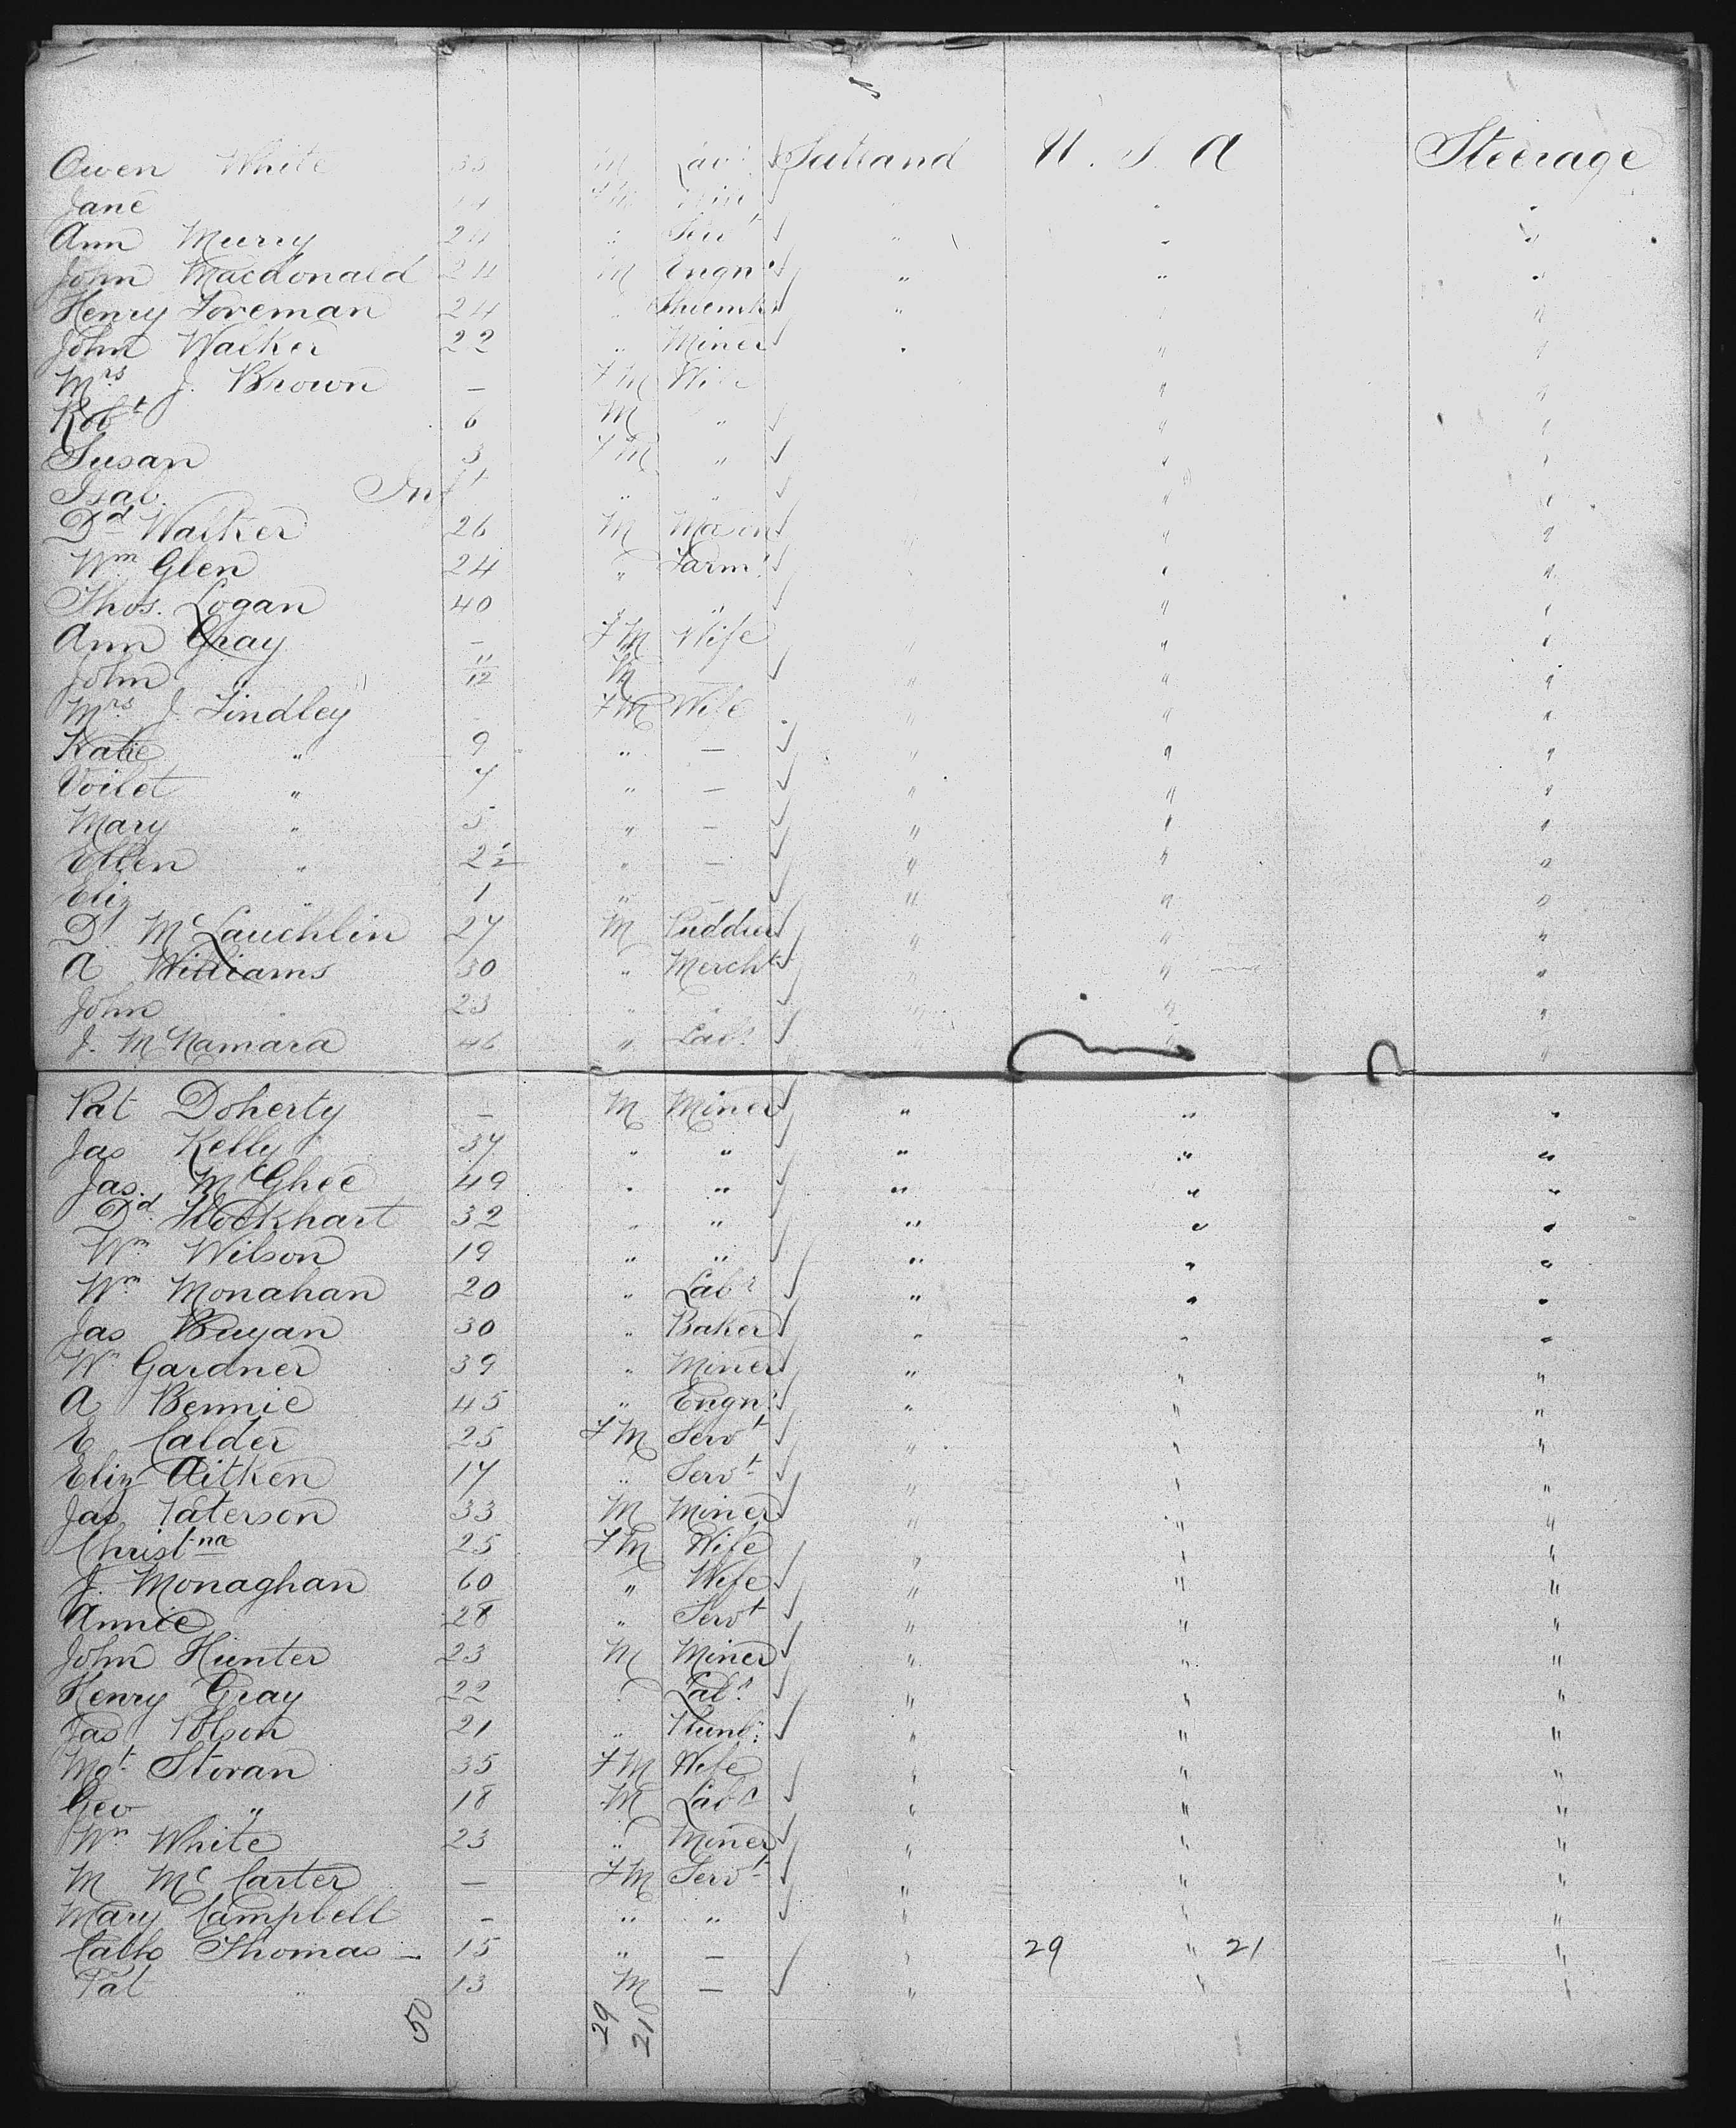 Owen White M Lab^r U. S. A Steerage
Jane FM "
Ann Murry 24 " Serv^t " " "
John Macdonald 24 M Engn^r " " "
Henry Foreman 24 " Shoemkr " " "
John Walker 22 " Miner " " "
M^rs J. Brown — FM Wife " "
Rob^t 6 M " " "
Susan 3 FM " " "
Isab. Inf^t " " " "
D^d Walker 26 M Mason " " "
W^m Glen 24 " Farm^r " " "
Thos. Logan 40 " " " "
Ann Gray — FM Wife " " "
John 11/12 M — " " "
M^rs J. Lindley - FM Wife " " "
Katie " 9 " — " " "
Voilet " 7 " — " " "
Mary " 5 " — " " "
Ellen " 2½ " — " " "
Eliz " 1 " — " " "
D^d M^c Lauchlin 27 M Puddler " " "
A Williams 30 " Mercht " " "
John " 23 " " " " "
J. McNamara 46 " Lab^r " "
Pat Doherty — M Miner " " "
Jas Kelly 37 " " " " "
Jas. McGhee 49 " " " " "
D^d Flockhart 32 " " " " "
W^m Wilson 19 " " " " "
W^m Monahan 20 " Lab^r " " "
Jas Bryan 30 " Baker " " "
W^m Gardner 39 " Miner " " "
A Bennie 45 " Engn^r " " "
E Calder 25 FM Serv^t " " "
Eliz Aitken 17 " Serv^t " " "
Jas Paterson 33 M Miner " " "
Christ^na 25 FM Wife " " "
J. Monaghan 60 " Wife " " "
Annie 28 " Serv^t " " "
John Hunter 23 M Miner " " "
Henry Gray 22 " Lab^r " " "
Jas Polson 21 " Plumb^r " " "
Mg^t Storan 35 FM Wife " " "
Geo " 18 M Lab^r " " "
W^m White 23 " Miner " " "
M Mc Carter — FM Serv^t " " "
Mary Campbell - " " " " "
Cath Thomas — 15 " — " 29 " 21 "
Pat " 13 M — " " "
50 29 21